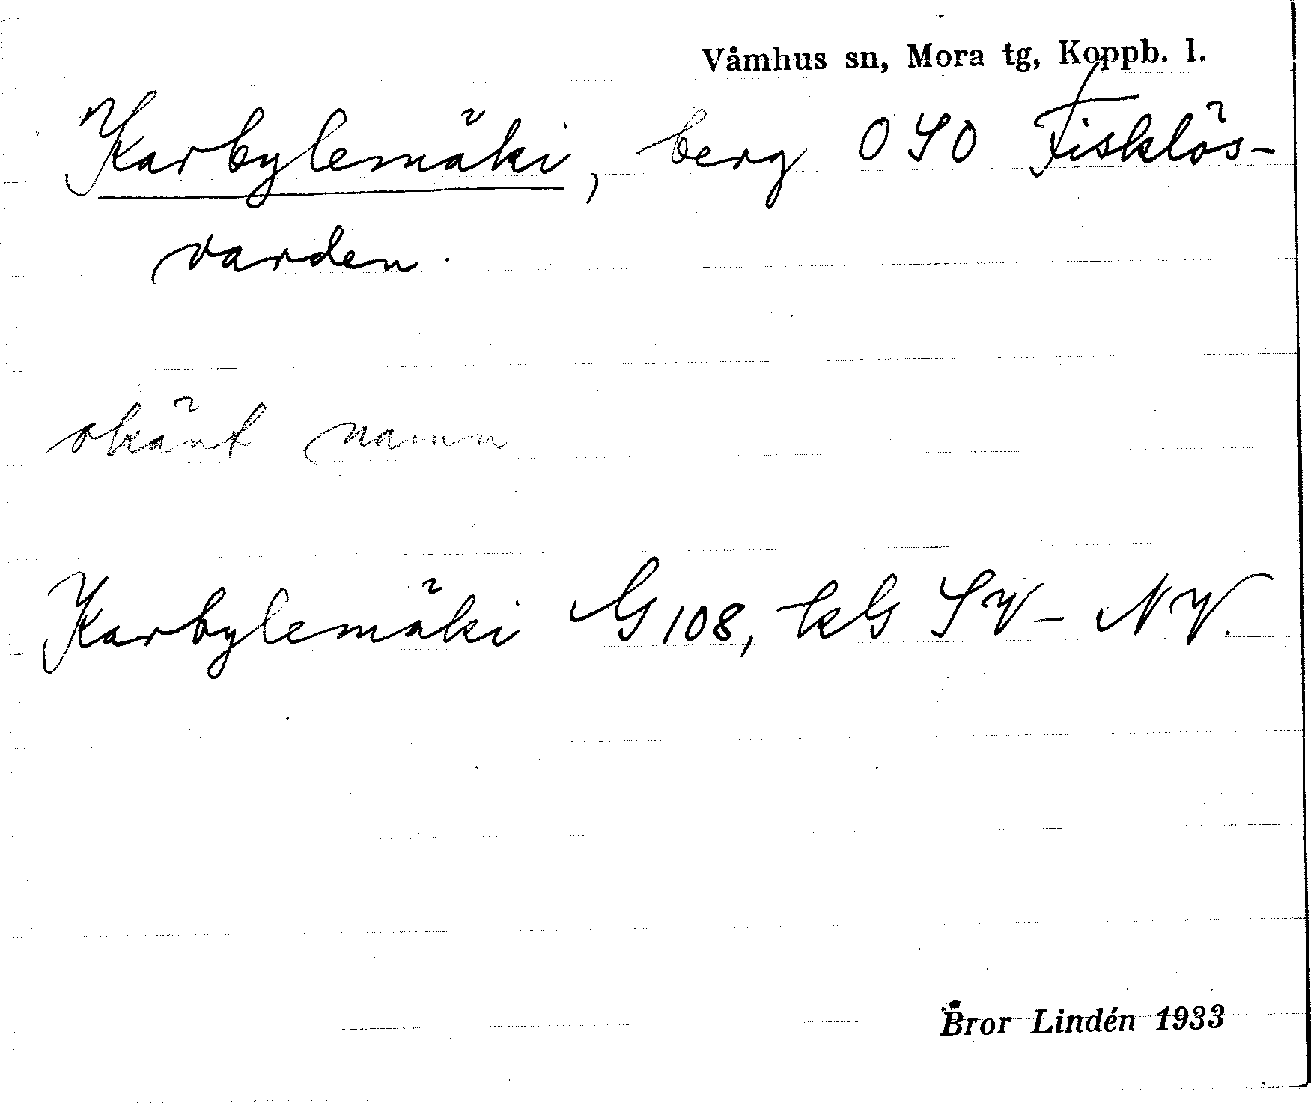 Våmhus sn, Mora tg, Koppb. l.
Karbylemäki, berg OSO Fisklös-
varden.
okänt namn
Karbylemäki G 108, kG SV – NV.
Bror Lindén 1933